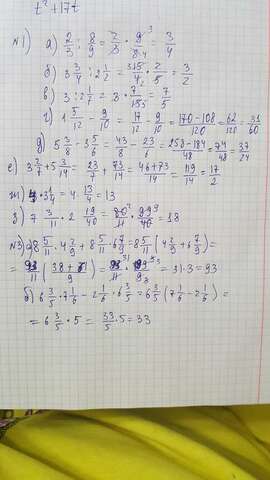 t² + 17t
№1) а) 2/3 : 8/9 = 2/3 · 9/8 = 3/4
б) 3 3/4 : 2 1/2 = 15/4 · 2/5 = 3/2
в) 3 : 2 1/7 = 3 · 7/15 = 7/5
г) 1 5/12 - 9/10 = 17/12 - 9/10 = 170-108/120 = 62/120 = 31/60
д) 5 3/8 - 3 5/6 = 43/8 - 23/6 = 258-184/48 = 74/48 = 37/24
е) 3 2/7 + 5 3/14 = 23/7 + 73/14 = 46+73/14 = 119/14 = 17/2
ж) 4 · 3 1/4 = 4 · 13/4 = 13
з) 7 3/11 · 2 19/40 = 80/11 · 99/40 = 18
№3) а) 8 5/11 · 4 2/9 + 8 5/11 · 6 7/9 = 8 5/11 (4 2/9 + 6 7/9) =
= 93/11 (38 + 61/9) = 93/11 · 99/9 = 31 · 3 = 93
б) 6 3/5 · 7 1/6 - 2 1/6 · 6 3/5 = 6 3/5 (7 1/6 - 2 1/6) =
= 6 3/5 · 5 = 33/5 · 5 = 33